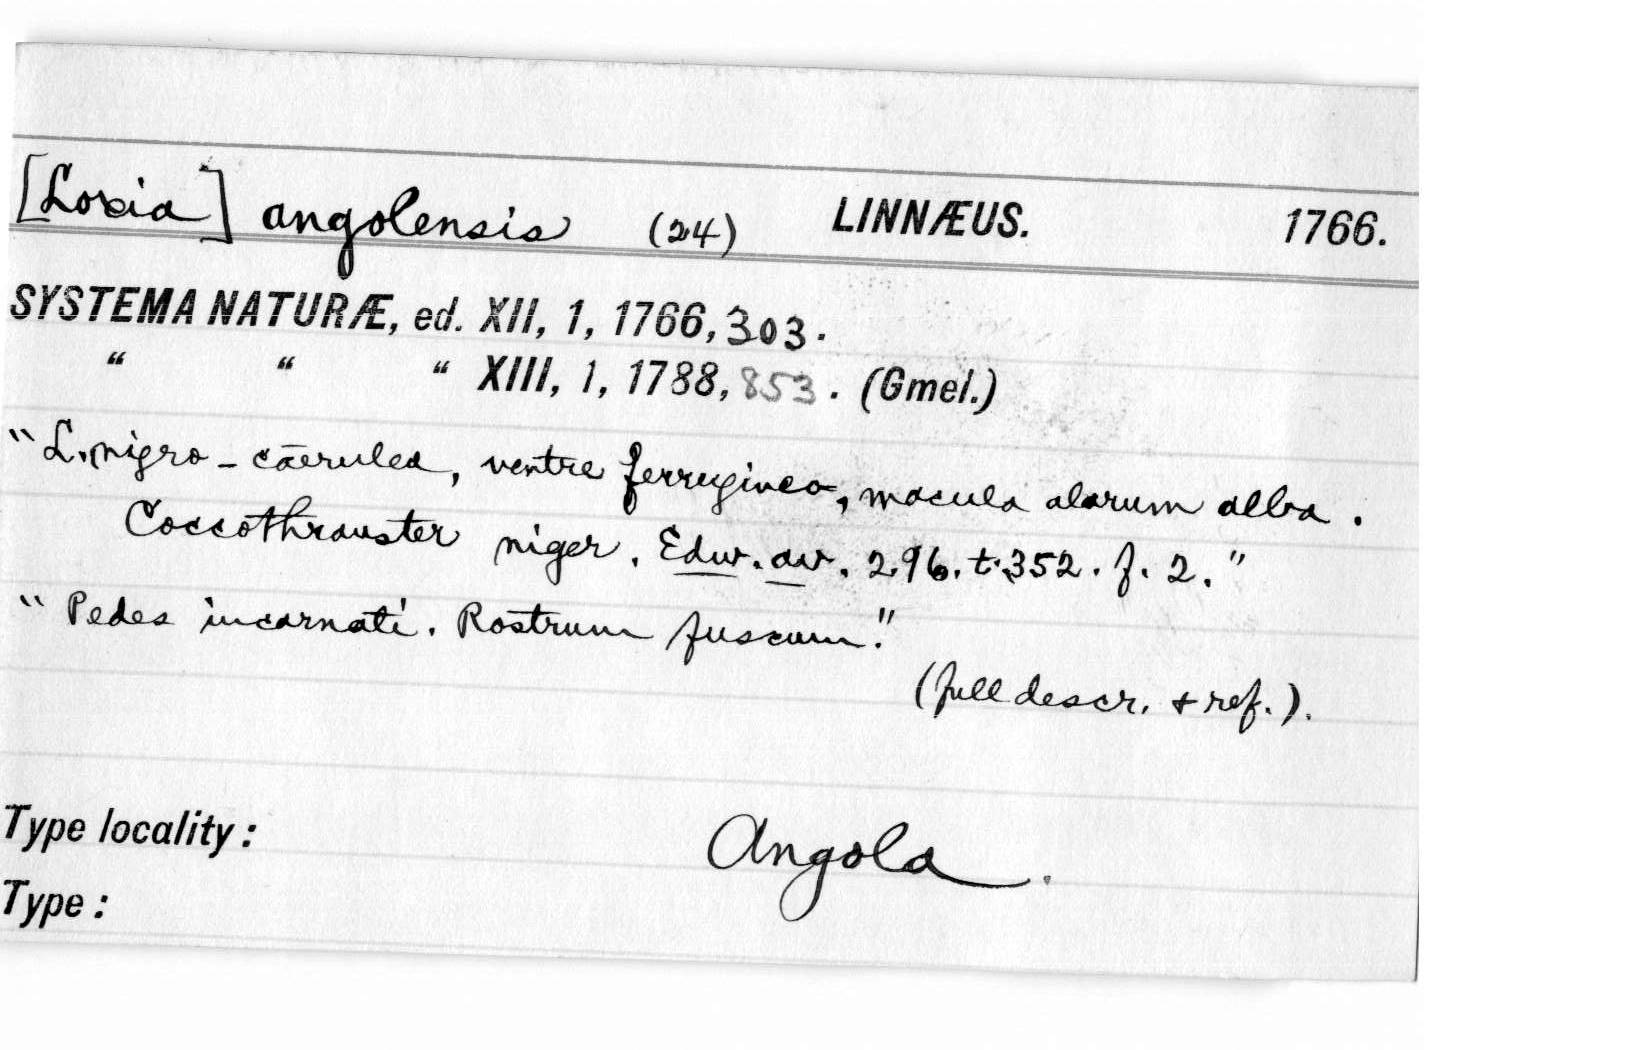 [Loxia] angolensis (24) LINNÆUS. 1766.
SYSTEMA NATURÆ, ed. XII, 1, 1766, 303.
“ “ “ XIII, 1, 1788, 853. (Gmel.)
"L. nigro-cærulea, ventre ferrugineo, macula alarum alba.
Coccothrauster niger. Edw. av. 296. t. 352. f. 2."
"Pedes incarnati. Rostrum fuscum."
(full descr. + ref.).
Type locality: Angola.
Type: